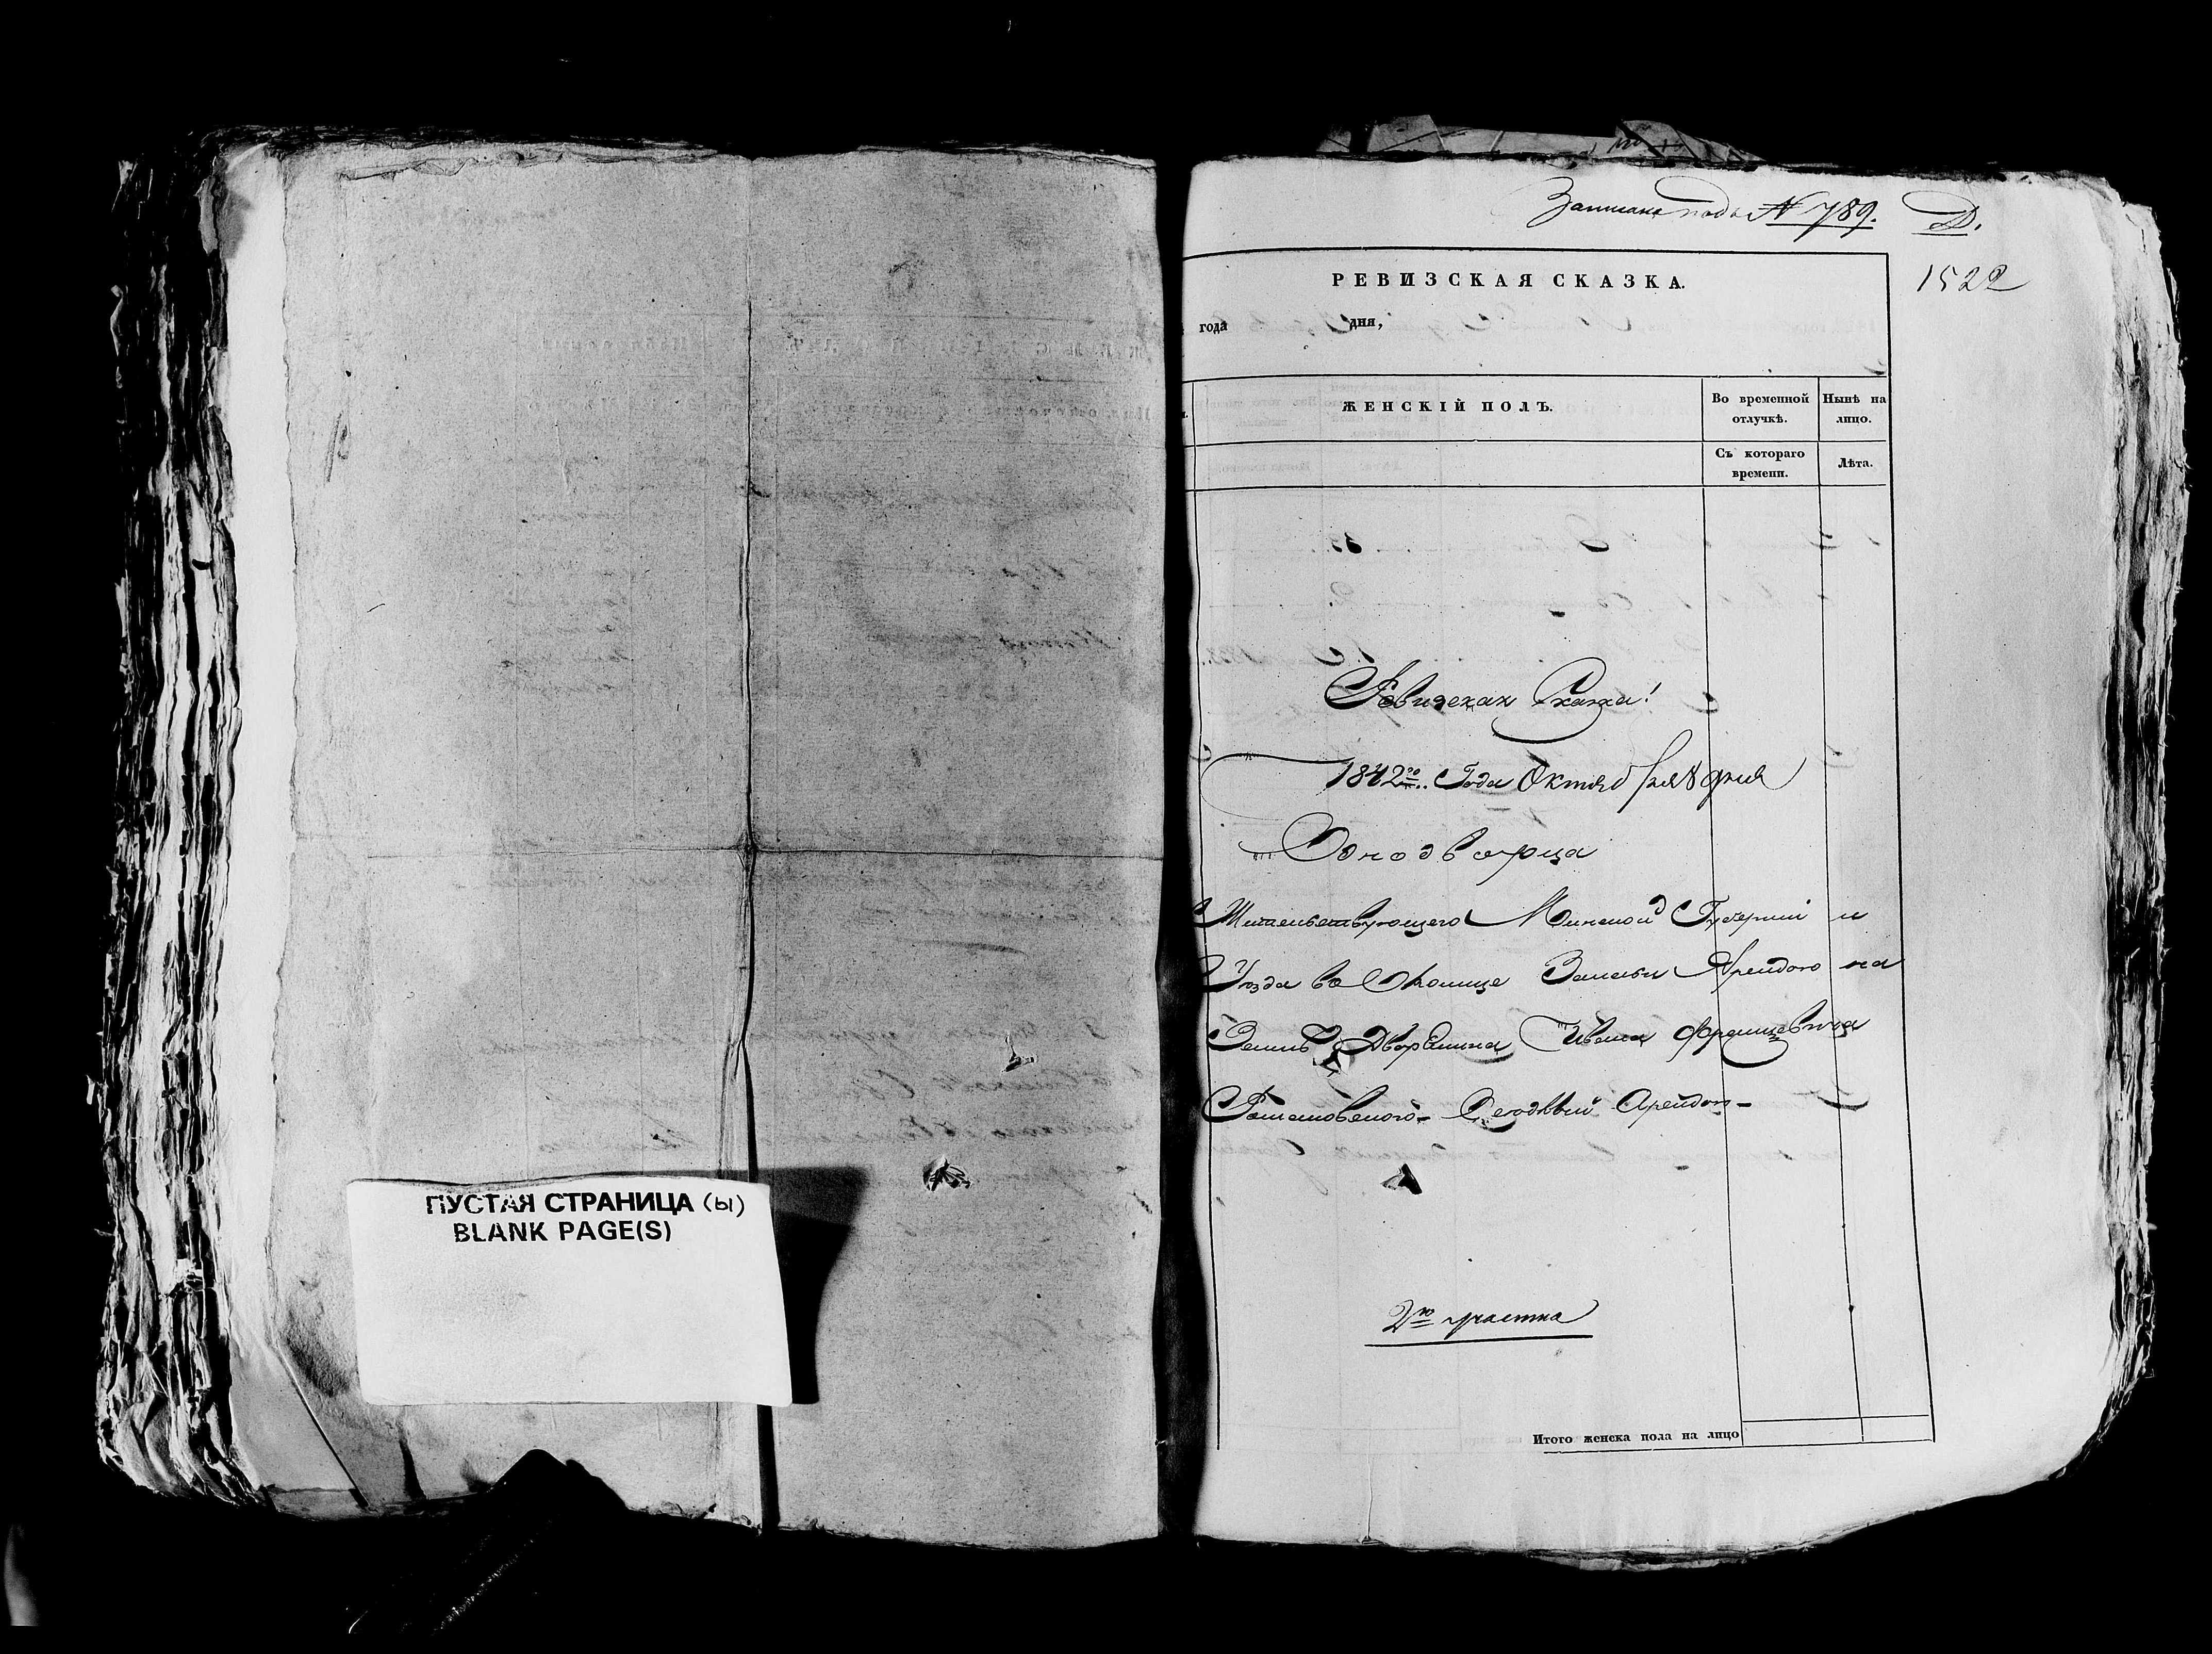 Записана подъ N 789. Д.
1522
РЕВИЗСКАЯ СКАЗКА.
года дня,
ЖЕНСКІЙ ПОЛЪ.
Во временной отлучкѣ.
Нынѣ на лицо.
Съ котораго времени.
Лѣта.
Ревизская Сказка!
1842го.. Года Октября 8 дня
Однодворца
Жительствующего Минской Губернии и
Уезда во Околице Арендою на
Земле Дворянина Ивана Францевича
Арендою
2го участка
Итого женска пола на лицо
ПУСТАЯ СТРАНИЦА (Ы)
BLANK PAGE(S)